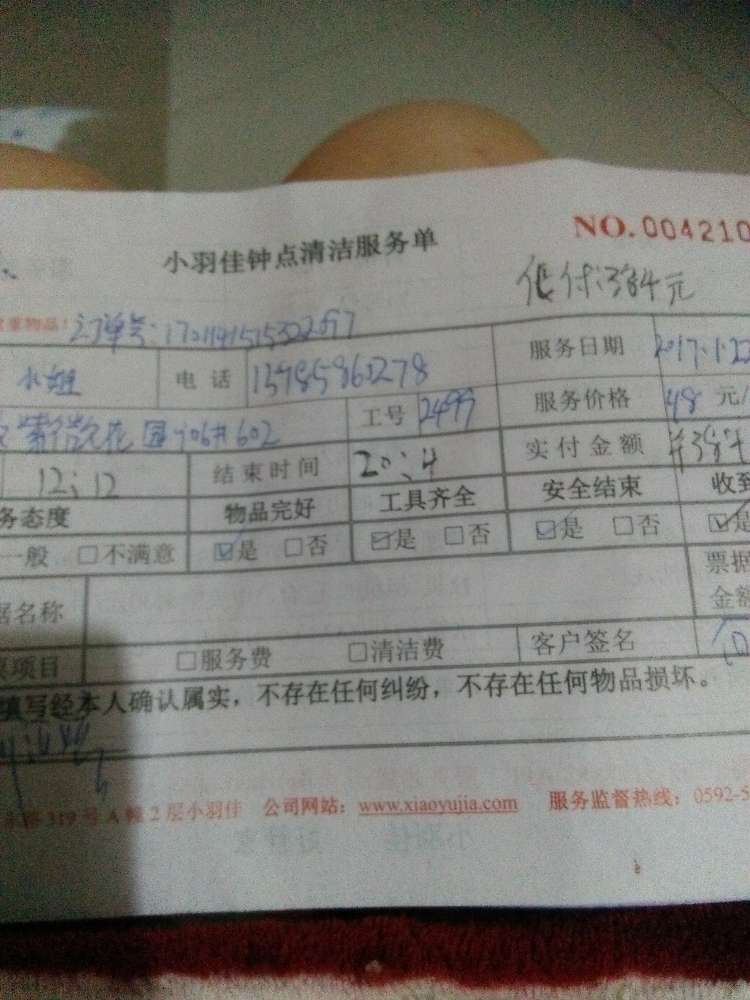 小羽佳钟点清洁服务单 NO.004210
付384元
重物品! 订单号:
小姐 电话 13985860278 服务日期 2017.1.22
园 602 工号 2499 服务价格 48 元/
12:12 结束时间 20:4 实付金额
务态度 物品完好 工具齐全 安全结束 收到
一般 □不满意 ☑是 □否 ☑是 □否 ☑是 □否 ☑是
据名称 票据
金额
项目 □服务费 □清洁费 客户签名
填写经本人确认属实，不存在任何纠纷，不存在任何物品损坏。
路319号A幢2层小羽佳 公司网站：www.xiaoyujia.com 服务监督热线：0592-5